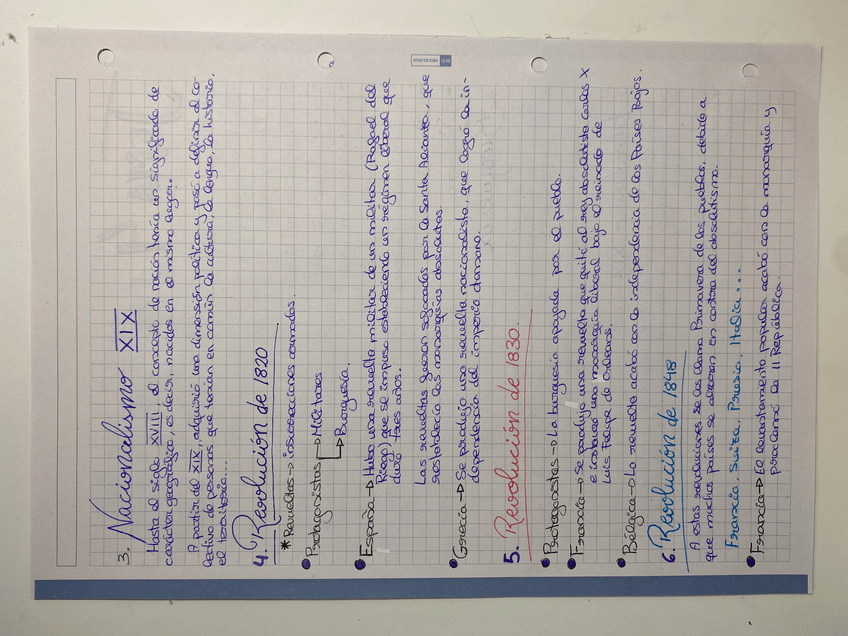 3. Nacionalismo XIX
Hasta el siglo XVIII, el concepto de nación tenía un significado de
carácter geográfico, es decir, nacidos en el mismo lugar.
A partir del XIX, adquirió una dimensión política y pasó a definir al co-
lectivo de personas que tenían en común la cultura, la lengua, la historia,
el territorio...
4. Revolución de 1820
* Revueltas → insurrecciones armadas.
Protagonistas → Militares
→ Burguesía.
España → Hubo una revuelta militar de un militar (Rafael del
Riego) que se impuso estableciendo un régimen liberal que
duró tres años.
Las revueltas fueron sofocadas por la Santa Alianza, que
restableció las monarquías absolutas.
Grecia → Se produjo una revuelta nacionalista, que logró la in-
dependencia del imperio otomano.
5. Revolución de 1830.
Protagonistas → La burguesía apoyada por el pueblo.
Francia → Se produjo una revuelta que quitó al rey absolutista Carlos X
e instauró una monarquía liberal bajo el reinado de
Luis Felipe de Orleans.
Bélgica → La revuelta acabó con la independencia de los Países Bajos.
6. Revolución de 1848
A estas revoluciones se las llama Primavera de los pueblos, debido a
que muchos países se alzaron en contra del absolutismo.
Francia, Suiza, Prusia, Italia...
Francia → El levantamiento popular acabó con la monarquía y
proclamó la II República.